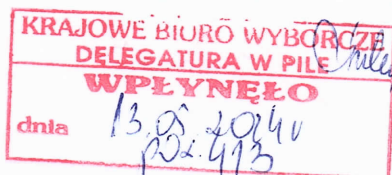 KRAJOWE BIURO WYBORCZE
DELEGATURA W PILE
WPŁYNĘŁO
dnia 13.05.2014r
poz. 413